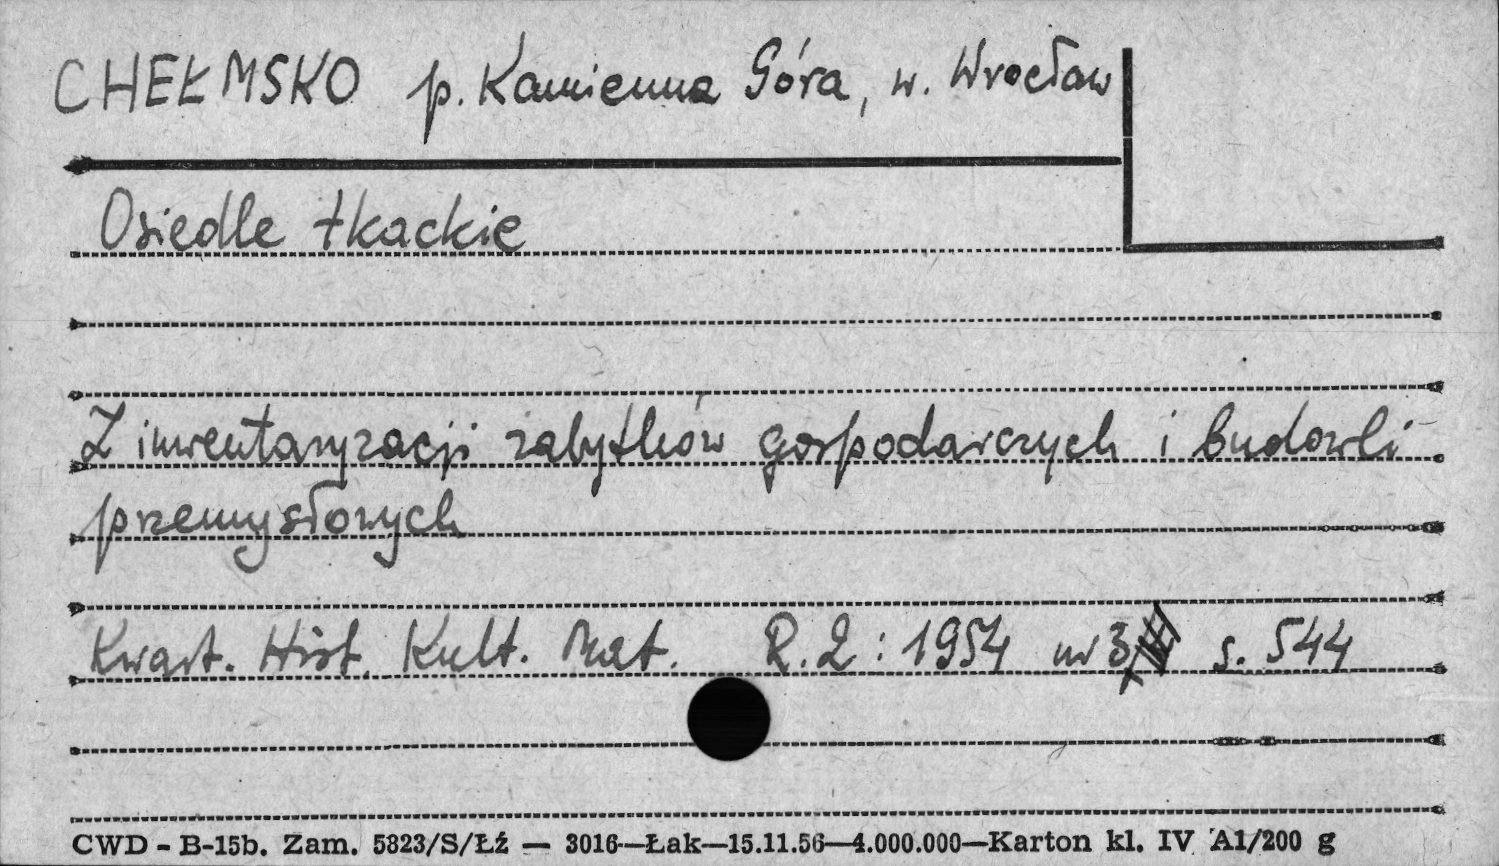 CHEŁMSKO p. Kamienna Góra, w. Wrocław
Osiedle tkackie
Z inwentaryzacji zabytków gospodarczych i budowli
przemysłowych
Kwart. Hist. Kult. Mat. R.2: 1954 nr 3 s. 544
CWD - B-15b. Zam. 5823/S/Łź — 3016—Łak—15.11.56—4.000.000—Karton kl. IV A1/200 g